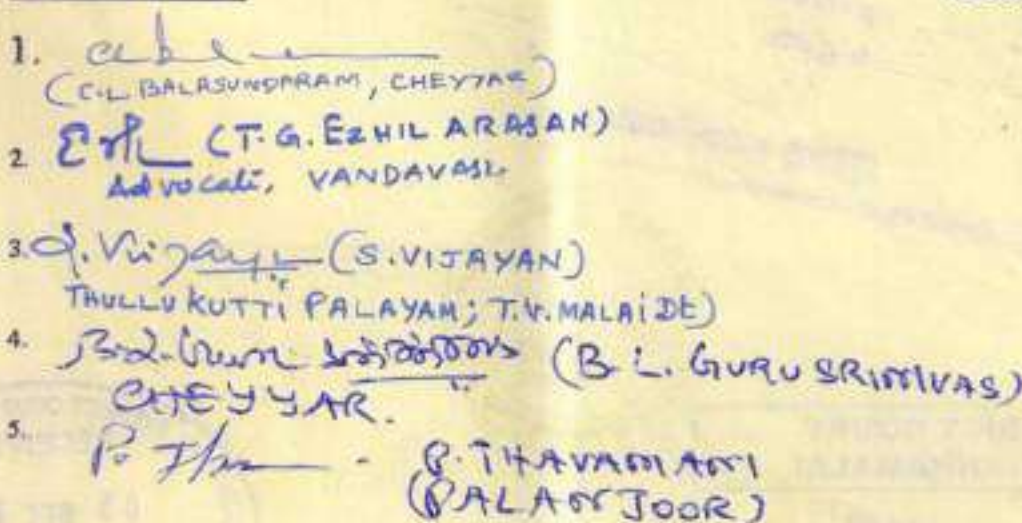 1.
(C.L BALASUNDARAM, CHEYYAR)
2. (T.G. EZHIL ARASAN)
Advocate, VANDAVASI.
3. S. Vijayan (S. VIJAYAN)
THULLUKUTTI PALAYAM; T.V. MALAI DT)
4. (B. L. GURU SRINIVAS)
CHEYYAR.
5. P. P. THAVAMANI
(PALANJOOR)